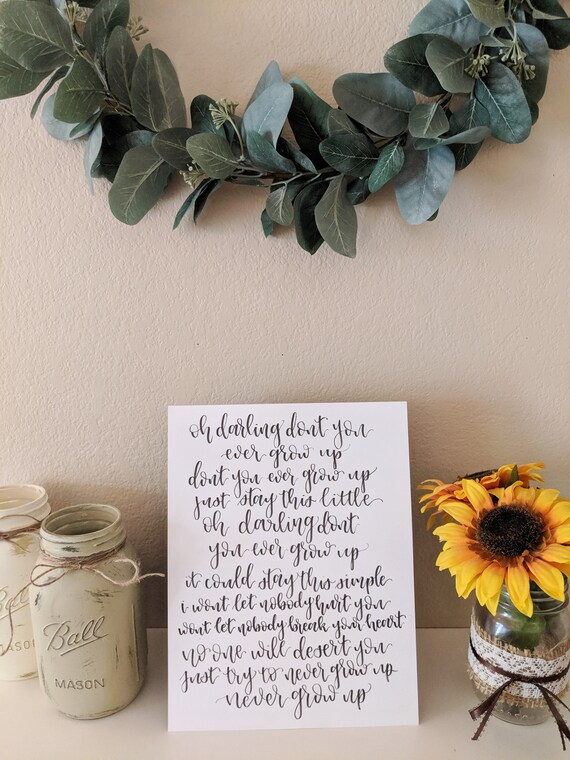 oh darling dont you
ever grow up
dont you ever grow up
just stay this little
oh darling dont
you ever grow up
it could stay this simple
i wont let nobody hurt you
wont let nobody break your heart
no one will desert you
just try to never grow up
never grow up
Ball
MASON